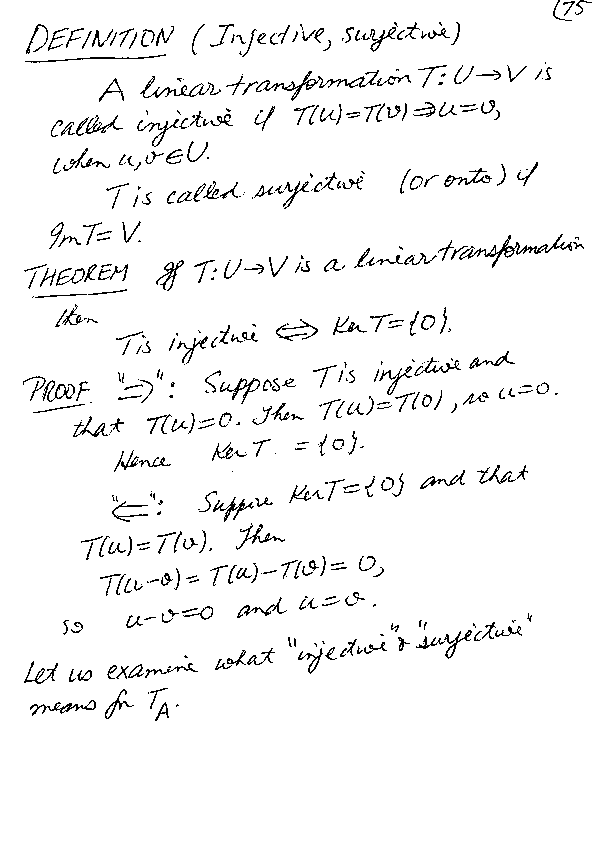 (75
DEFINITION (Injective, surjective)
A linear transformation T: U→V is
called injective if T(u)=T(v)⇒u=v,
when u,v∈U.
T is called surjective (or onto) if
Im T = V.
THEOREM If T: U→V is a linear transformation
then
T is injective ⇔ Ker T = {0}.
PROOF. "⇒": Suppose T is injective and
that T(u)=0. Then T(u)=T(0), so u=0.
Hence Ker T = {0}.
"⇐": Suppose Ker T = {0} and that
T(u)=T(v). Then
T(u-v) = T(u)-T(v) = 0,
so u-v=0 and u=v.
Let us examine what "injective" & "surjective"
means for T_A.